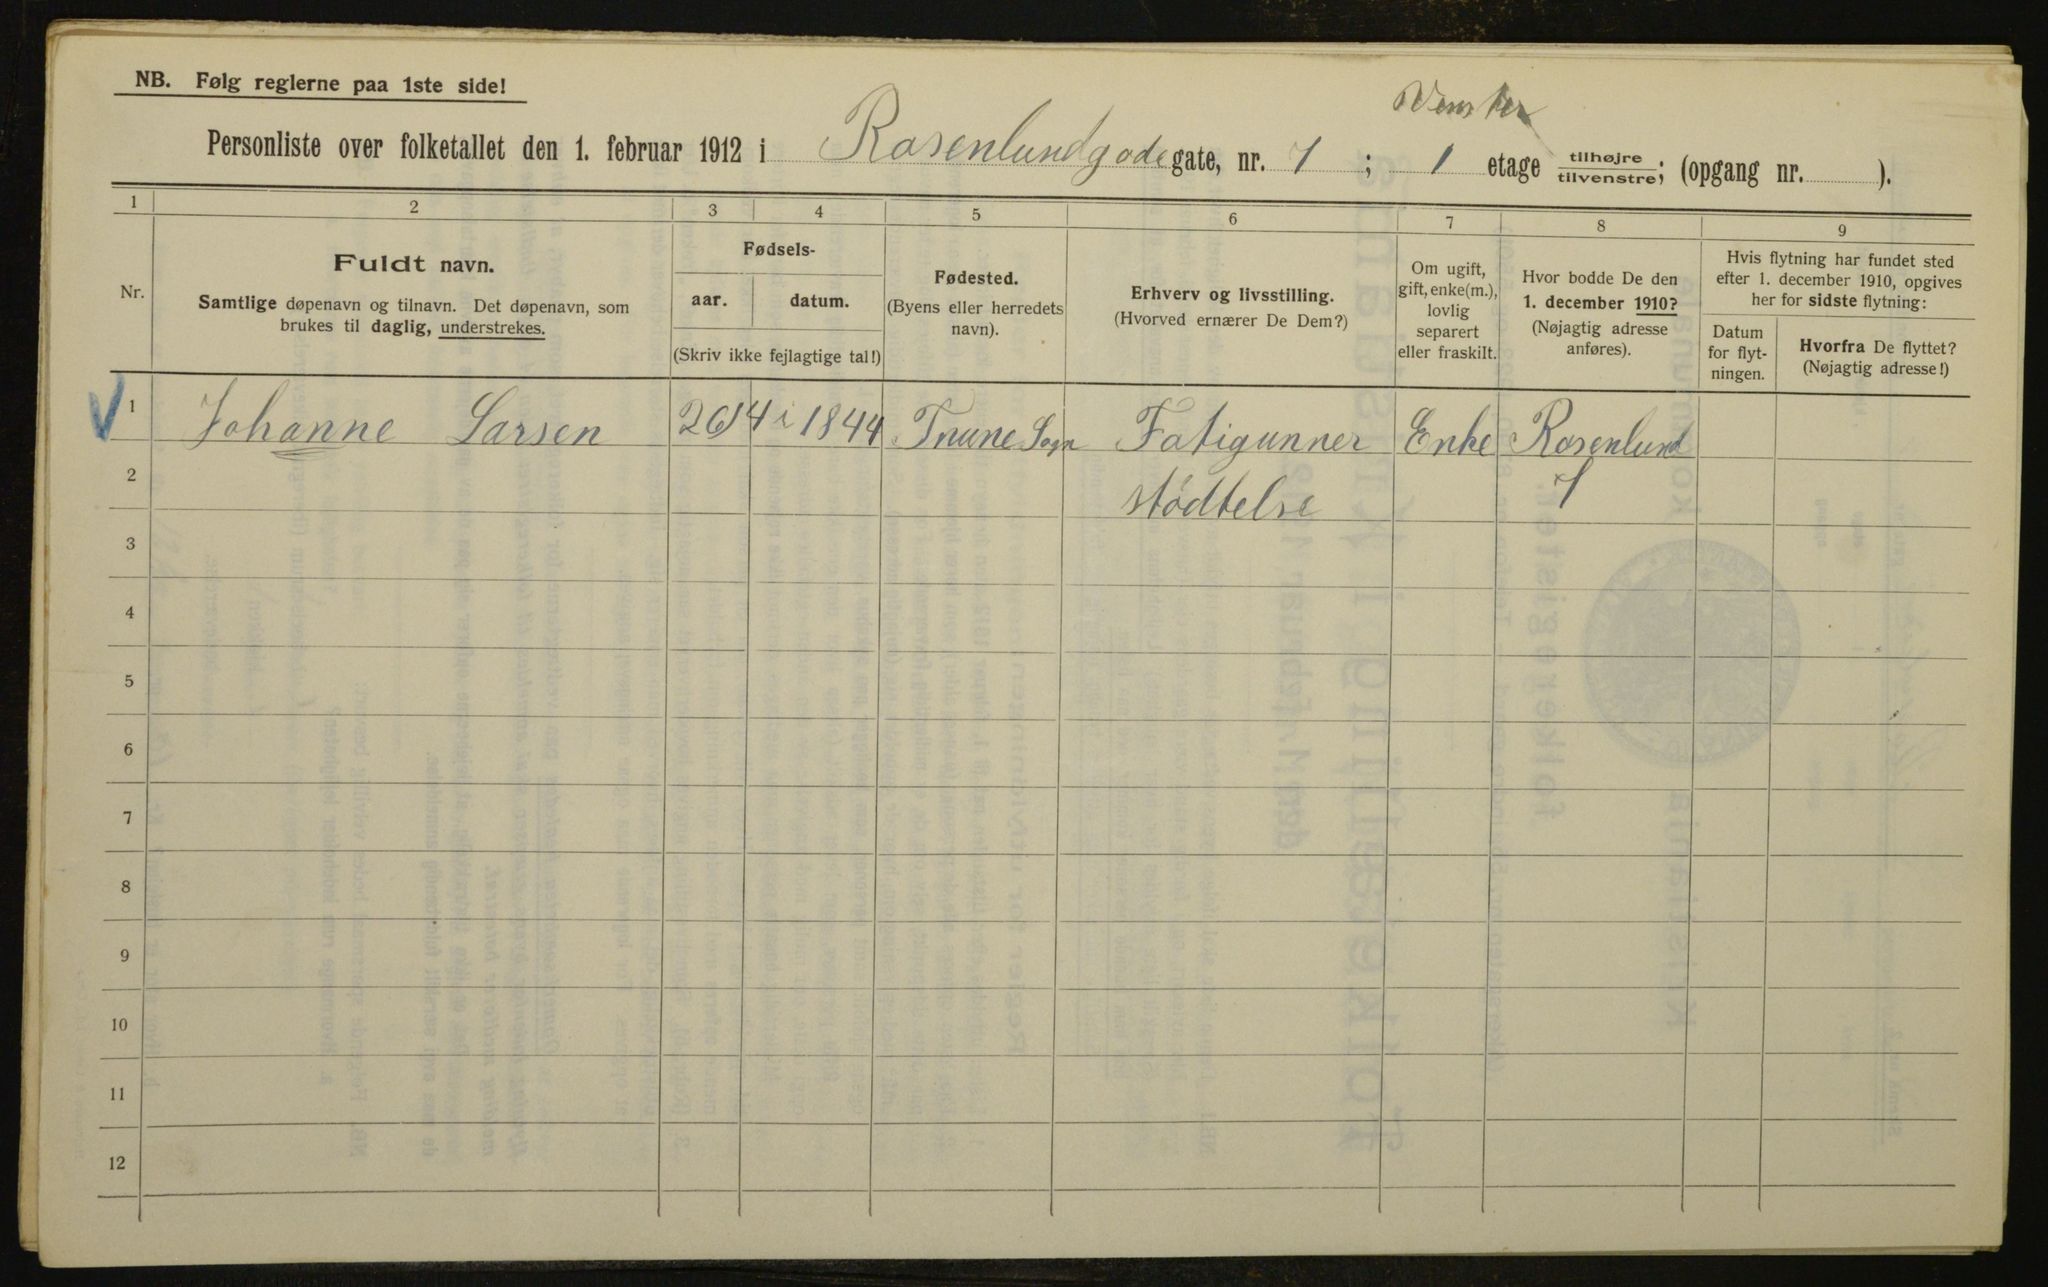 NB. Følg reglerne paa 1ste side!
Venster
Personliste over folketallet den 1. februar 1912 i Rosenlundgade gate, nr. 7 ; 1 etage tilhøjre/tilvenstre; (opgang nr. ).
1 2 3 4 5 6 7 8 9
Nr.
Fuldt navn.
Samtlige døpenavn og tilnavn. Det døpenavn, som
brukes til daglig, understrekes.
Fødsels-
aar. datum.
(Skriv ikke fejlagtige tal!)
Fødested.
(Byens eller herredets
navn).
Erhverv og livsstilling.
(Hvorved ernærer De Dem?)
Om ugift,
gift, enke(m.),
lovlig
separert
eller fraskilt.
Hvor bodde De den
1. december 1910?
(Nøjagtig adresse
anføres).
Hvis flytning har fundet sted
efter 1. december 1910, opgives
her for sidste flytning:
Datum
for flyt-
ningen.
Hvorfra De flyttet?
(Nøjagtig adresse!)
1 Johanne Larsen 26/4 i 1844 Tnune Sogn Fatigunner Enke Rosenlund
2 stødtelse 7
3
4
5
6
7
8
9
10
11
12